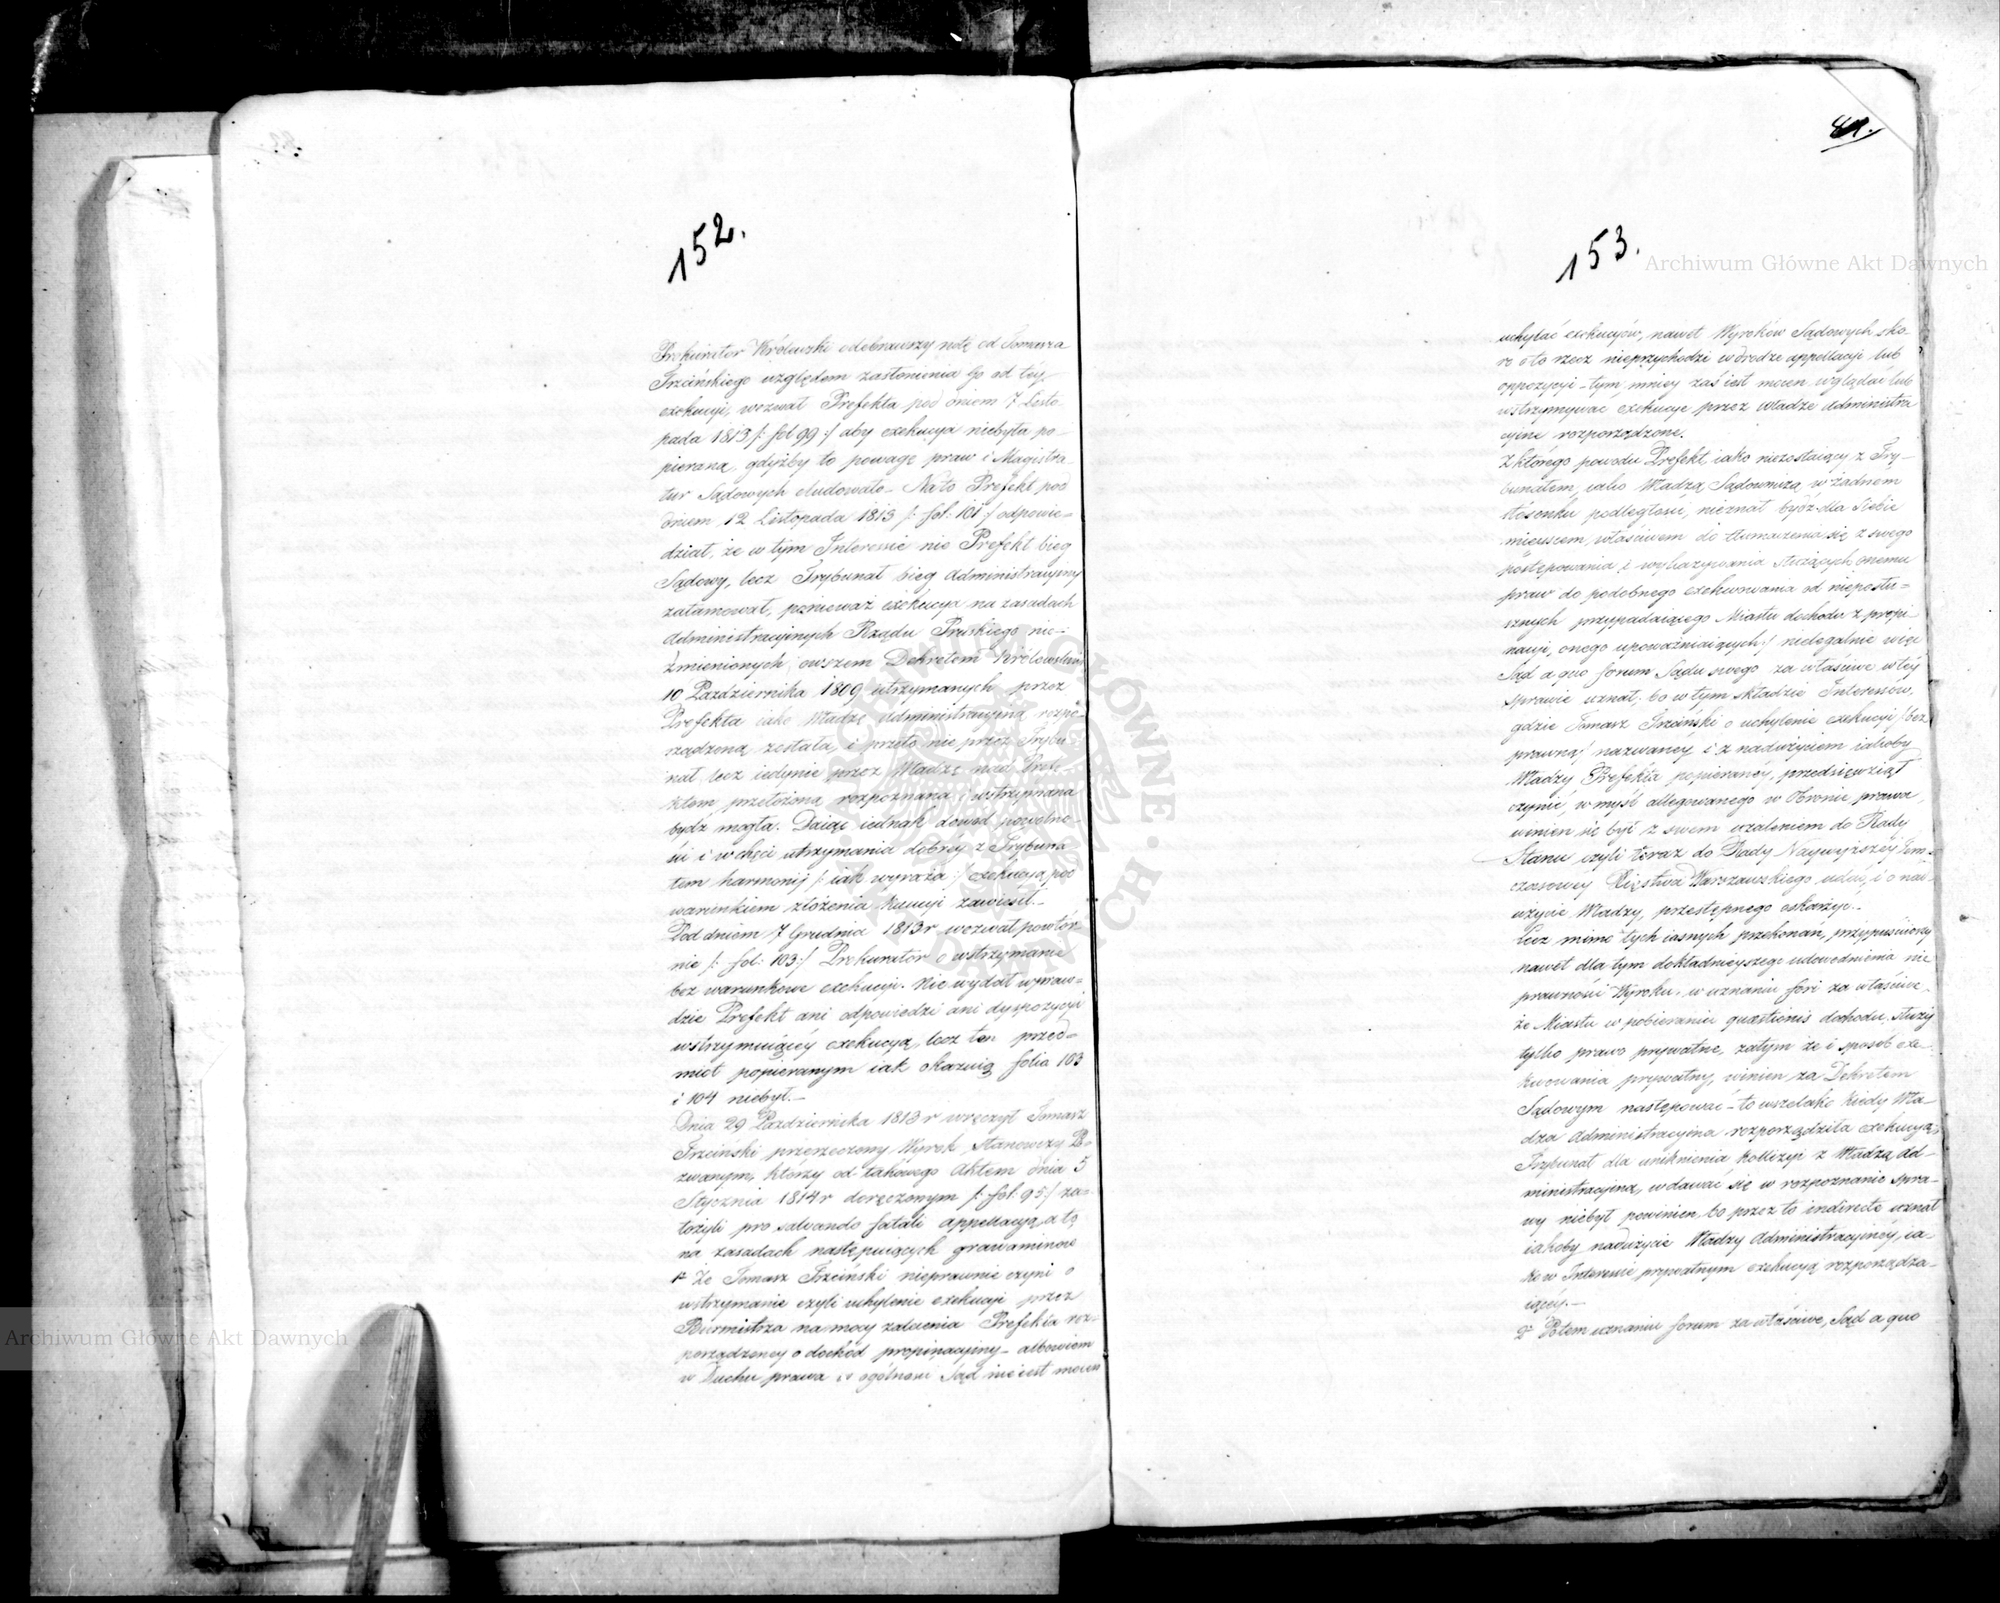 152.
Prokurator Królewski odebrawszy notę od Tomasza
Trzcińskiego względem zasłonienia Go od téy
exekucyi, wezwał Prefekta pod dniem 7 Listo-
pada 1813 /: fol 99 :/ aby exekucya niebyła po-
pieraną, gdyżby to powagę praw i Magistra-
tur Sądowych eludowało – Na to Prefekt pod
dniem 12 Listopada 1813 /: fol: 101 :/ odpowie-
dział, że w tym Interessie nie Prefekt bieg
Sądowy, lecz Trybunał bieg administracyiny
zatamował, ponieważ exekucya na zasadach
administracyinych Rządu Pruskiego nie-
zmienionych, owszem Dekretem Królewskim
10 Pazdziernika 1809 utrzymanych przez
Prefekta iako Władzę administracyiną rozpo-
rządzoną została, i przeto nie przez Trybu-
nał lecz iedynie przez Władzę nad Prefe-
ktem przełożoną rozpoznana i wstrzymana
bydź mogła. Daiąc iednak dowod powolno-
ści i w chęci utrzymania dobréy z Trybuna-
tem harmonij /: iak wyraża :/ exekucyą pod
warunkiem złożenia Kaucyi zawiesił. –
Pod dniem 7 Grudnia 1813 r wezwał powtór-
nie /: fol: 103 :/ Prokurator o wstrzymanie
bez warunkowe exekucyi. Nie wydał wpraw-
dzie Prefekt ani odpowiedzi ani dyspozycyi
wstrzymuiącéy exekucyą, lecz ten przed-
miot popieranym iak okazuią folia 103
i 104 niebył. –
Dnia 29 Pazdziernika 1813 r wręczył Tomasz
Trzciński przerzeczony Wyrok Stanowczy Po-
zwanym, którzy od takowego Aktem dnia 5
Stycznia 1814 r doręczonym /: fol: 95 :/ za-
łożyli pro salvando fatali appellacyą, a tą
na zasadach następuiących grawaminow
1° Że Tomasz Trzciński nieprawnie czyni o
wstrzymanie czyli uchylenie exekucyi przez
Burmistrza na mocy zalecenia Prefekta roz-
porządzoney o dochód propinacyiny – albowiem
w Duchu prawa i w ogólności Sąd nie iest mocen
81.
153.
uchylać exekucyów, nawet Wyroków Sądowych sko-
ro o to rzecz nieprzychodzi w drodze appellacyi lub
oppozycyi – tym mniey zaś iest mocen wglądać lub
wstrzymywać exekucye przez władze administra-
cyine rozporządzone.
Z którego powodu Prefekt iako niezostaiący z Try-
bunałem iako Władzą Sądowniczą w żadnem
stósunku podległości, nieznał bydź dla siebie
mieyscem właściwem do tłumaczenia się z swego
postępowania i wykazywania służących onemu
praw do podobnego exekwowania od nieposłu-
sznych przypadaiącego Miastu dochodu z propi-
nacyi, onego upoważniaiących :/ nielegalnie więc
Sąd a quo forum Sądu swego za właściwe w téy
sprawie uznał, bo w tym składzie Interessów,
gdzie Tomasz Trzciński o uchylenie exekucyi / bez
prawną / nazwaney i z nadużyciem iakoby
Władzy Prefekta popieranéy, przedsięwziął
czynić, w myśl allegowanego w Obronie prawa,
winien się był z swem użaleniem do Rady
Stanu czyli teraz do Rady Naywyższey Tym-
czasowey Xięstwa Warszawskiego udać, i o nad-
użycie Władzy, przestępnego oskarżyć. –
Lecz mimo tych iasnych przekonań, przypuściwszy
nawet dla tym dokładnieyszego udowodnienia nie
prawności Wyroku, w uznaniu fori za właściwe,
że Miastu w pobieraniu quaestionis dochodu służy
tylko prawo prywatne, zatym że i sposób exe-
kwowania prywatny, winien za Dekretem
Sądowym następować – to wszelako kiedy Wła-
dza administracyina rozporządziła exekucyą,
Trybunał dla uniknienia kollizyi z Władzą ad-
ministracyiną, wdawać się w rozpoznanie Spra-
wy niebył powinien, bo przez to indirecte uznał
iakoby nadużycie Władzy administracyinéy, ia-
ko w Interessie prywatnym exekucyą rozporządza-
iącéy. –
2° Po tem uznaniu forum za właściwe, Sąd a quo
Archiwum Główne Akt Dawnych
Archiwum Główne Akt Dawnych